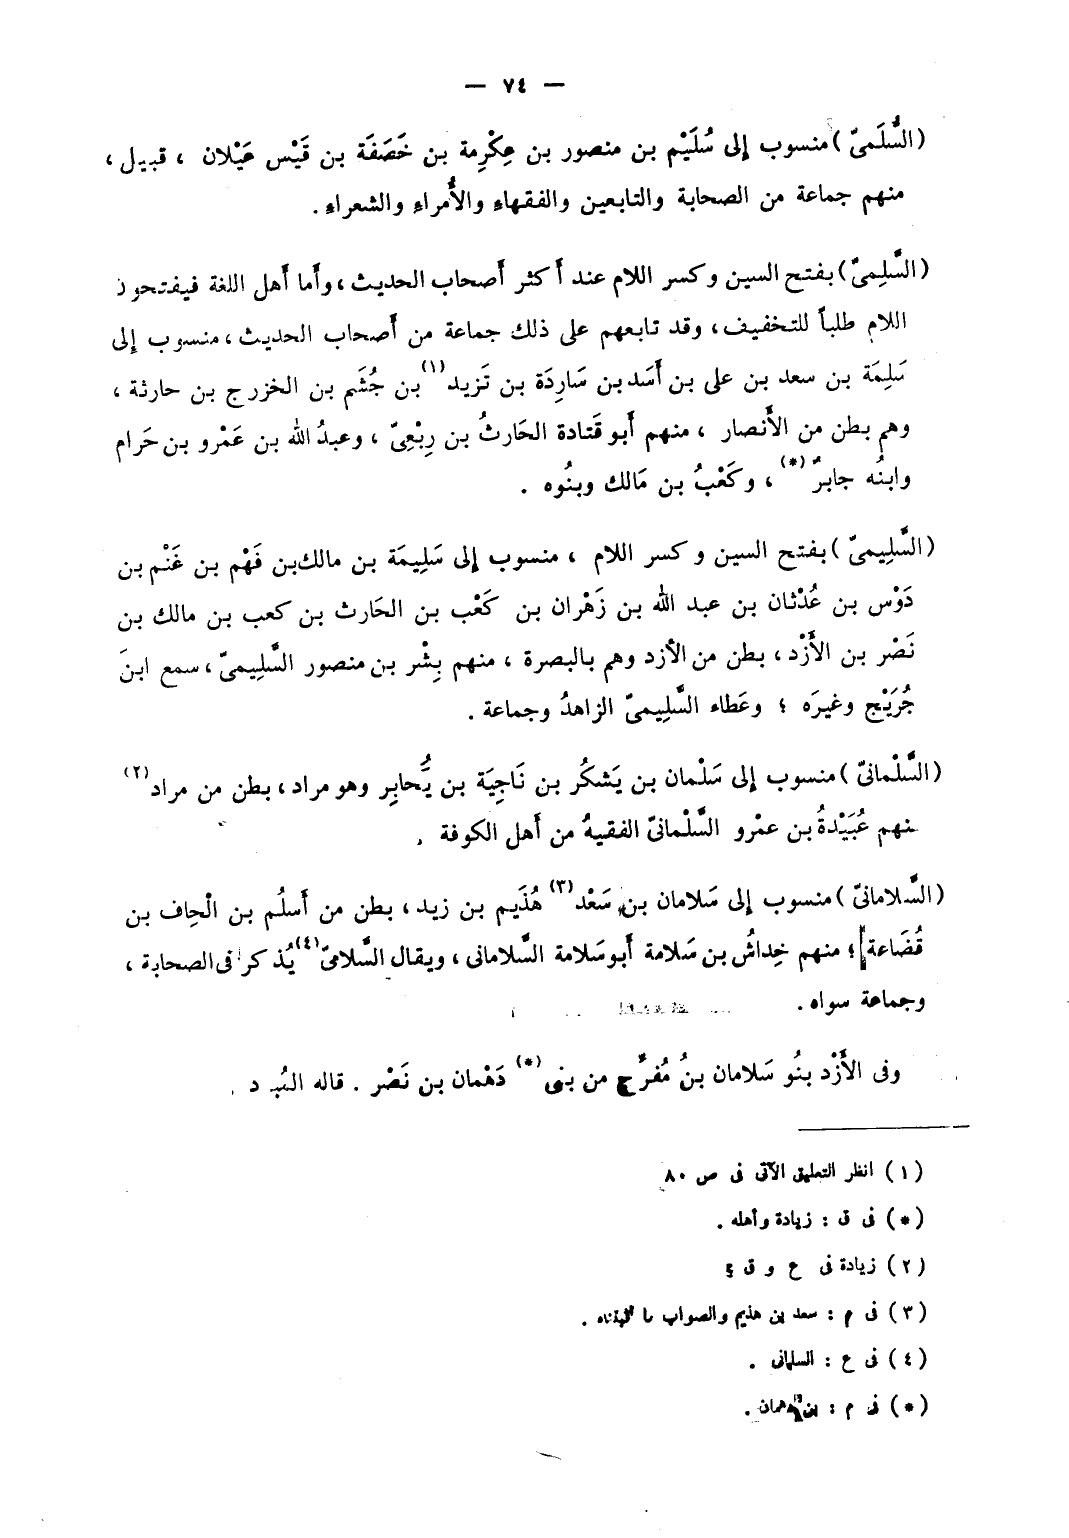 — ٧٤ —
(السُّلَمىّ) منسوب إلى سُلَيْم بن منصور بن عِكْرِمة بن خَصَفَة بن قَيْس عَيْلان ، قبيل ،
منهم جماعة من الصحابة والتابعين والفقهاء والأُمراء والشعراء .
(السَّلِمىّ) بفتح السين وكسر اللام عند أكثر أصحاب الحديث ، وأما أهل اللغة فيفتحون
اللام طلباً للتخفيف ، وقد تابعهم على ذلك جماعة من أصحاب الحديث ، منسوب إلى
سَلِمَة بن سعد بن على بن أَسَد بن سَارِدَة بن تَزيد (١) بن جُشَم بن الخزرج بن حارثة ،
وهم بطن من الأَنصار ، منهم أَبو قَتادة الحَارثُ بن رِبْعِىّ ، وعبدُ الله بن عَمْرو بن حَرام
وابنُه جابرٌ (*) ، وكَعْبُ بن مَالك وبنُوه .
(السَّلِيمىّ) بفتح السين وكسر اللام ، منسوب إلى سَلِيمَة بن مالك بن فَهْم بن غَنْم بن
دَوْس بن عُدْثان بن عبد الله بن زَهْران بن كَعْب بن الحَارث بن كعب بن مالك بن
نَصْر بن الأَزْد ، بطن من الأزد وهم بالبصرة ، منهم بِشْر بن منصور السَّلِيمىّ ، سمع ابنَ
جُرَيْج وغيرَه ؛ وعَطاء السَّلِيمىّ الزاهدُ وجماعة .
(السَّلْمانىّ) منسوب إلى سَلْمان بن يَشكُر بن نَاجِيَة بن يُحابِر وهو مراد ، بطن من مراد (٢)
منهم عُبَيْدةُ بن عمْرو السَّلْمانىّ الفقيهُ من أَهل الكوفة .
(السَّلامانىّ) منسوب إلى سَلامان بن سَعْد (٣) هُذَيم بن زيد ، بطن من أَسلُم بن الْحاف بن
قُضَاعة ؛ منهم خِداشُ بن سَلامة أَبو سَلامة السَّلامانى ، ويقال السَّلامىّ (٤) يُذكر فى الصحابة ،
وجماعة سواه .
وفى الأَزْد بنُو سَلامان بنُ مُفرِّج من بنى (*) دَهْمان بن نَصْر . قاله المُبرّد .
(١) انظر التعليق الآتى فى ص ٨٠
(*) فى ق : زيادة وأهله .
(٢) زيادة فى ع و ق
(٣) فى م : سعد بن هذيم والصواب ما أثبتناه .
(٤) فى ع : السلمانى .
(*) فى م : بن دهمان .